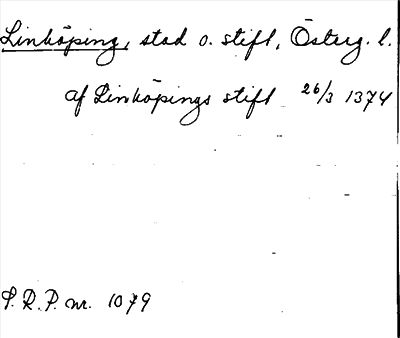 Linköping, stad o. stift, Österg. l.
af Linköpings stift 26/3 1374
S. R. P. nr. 1079